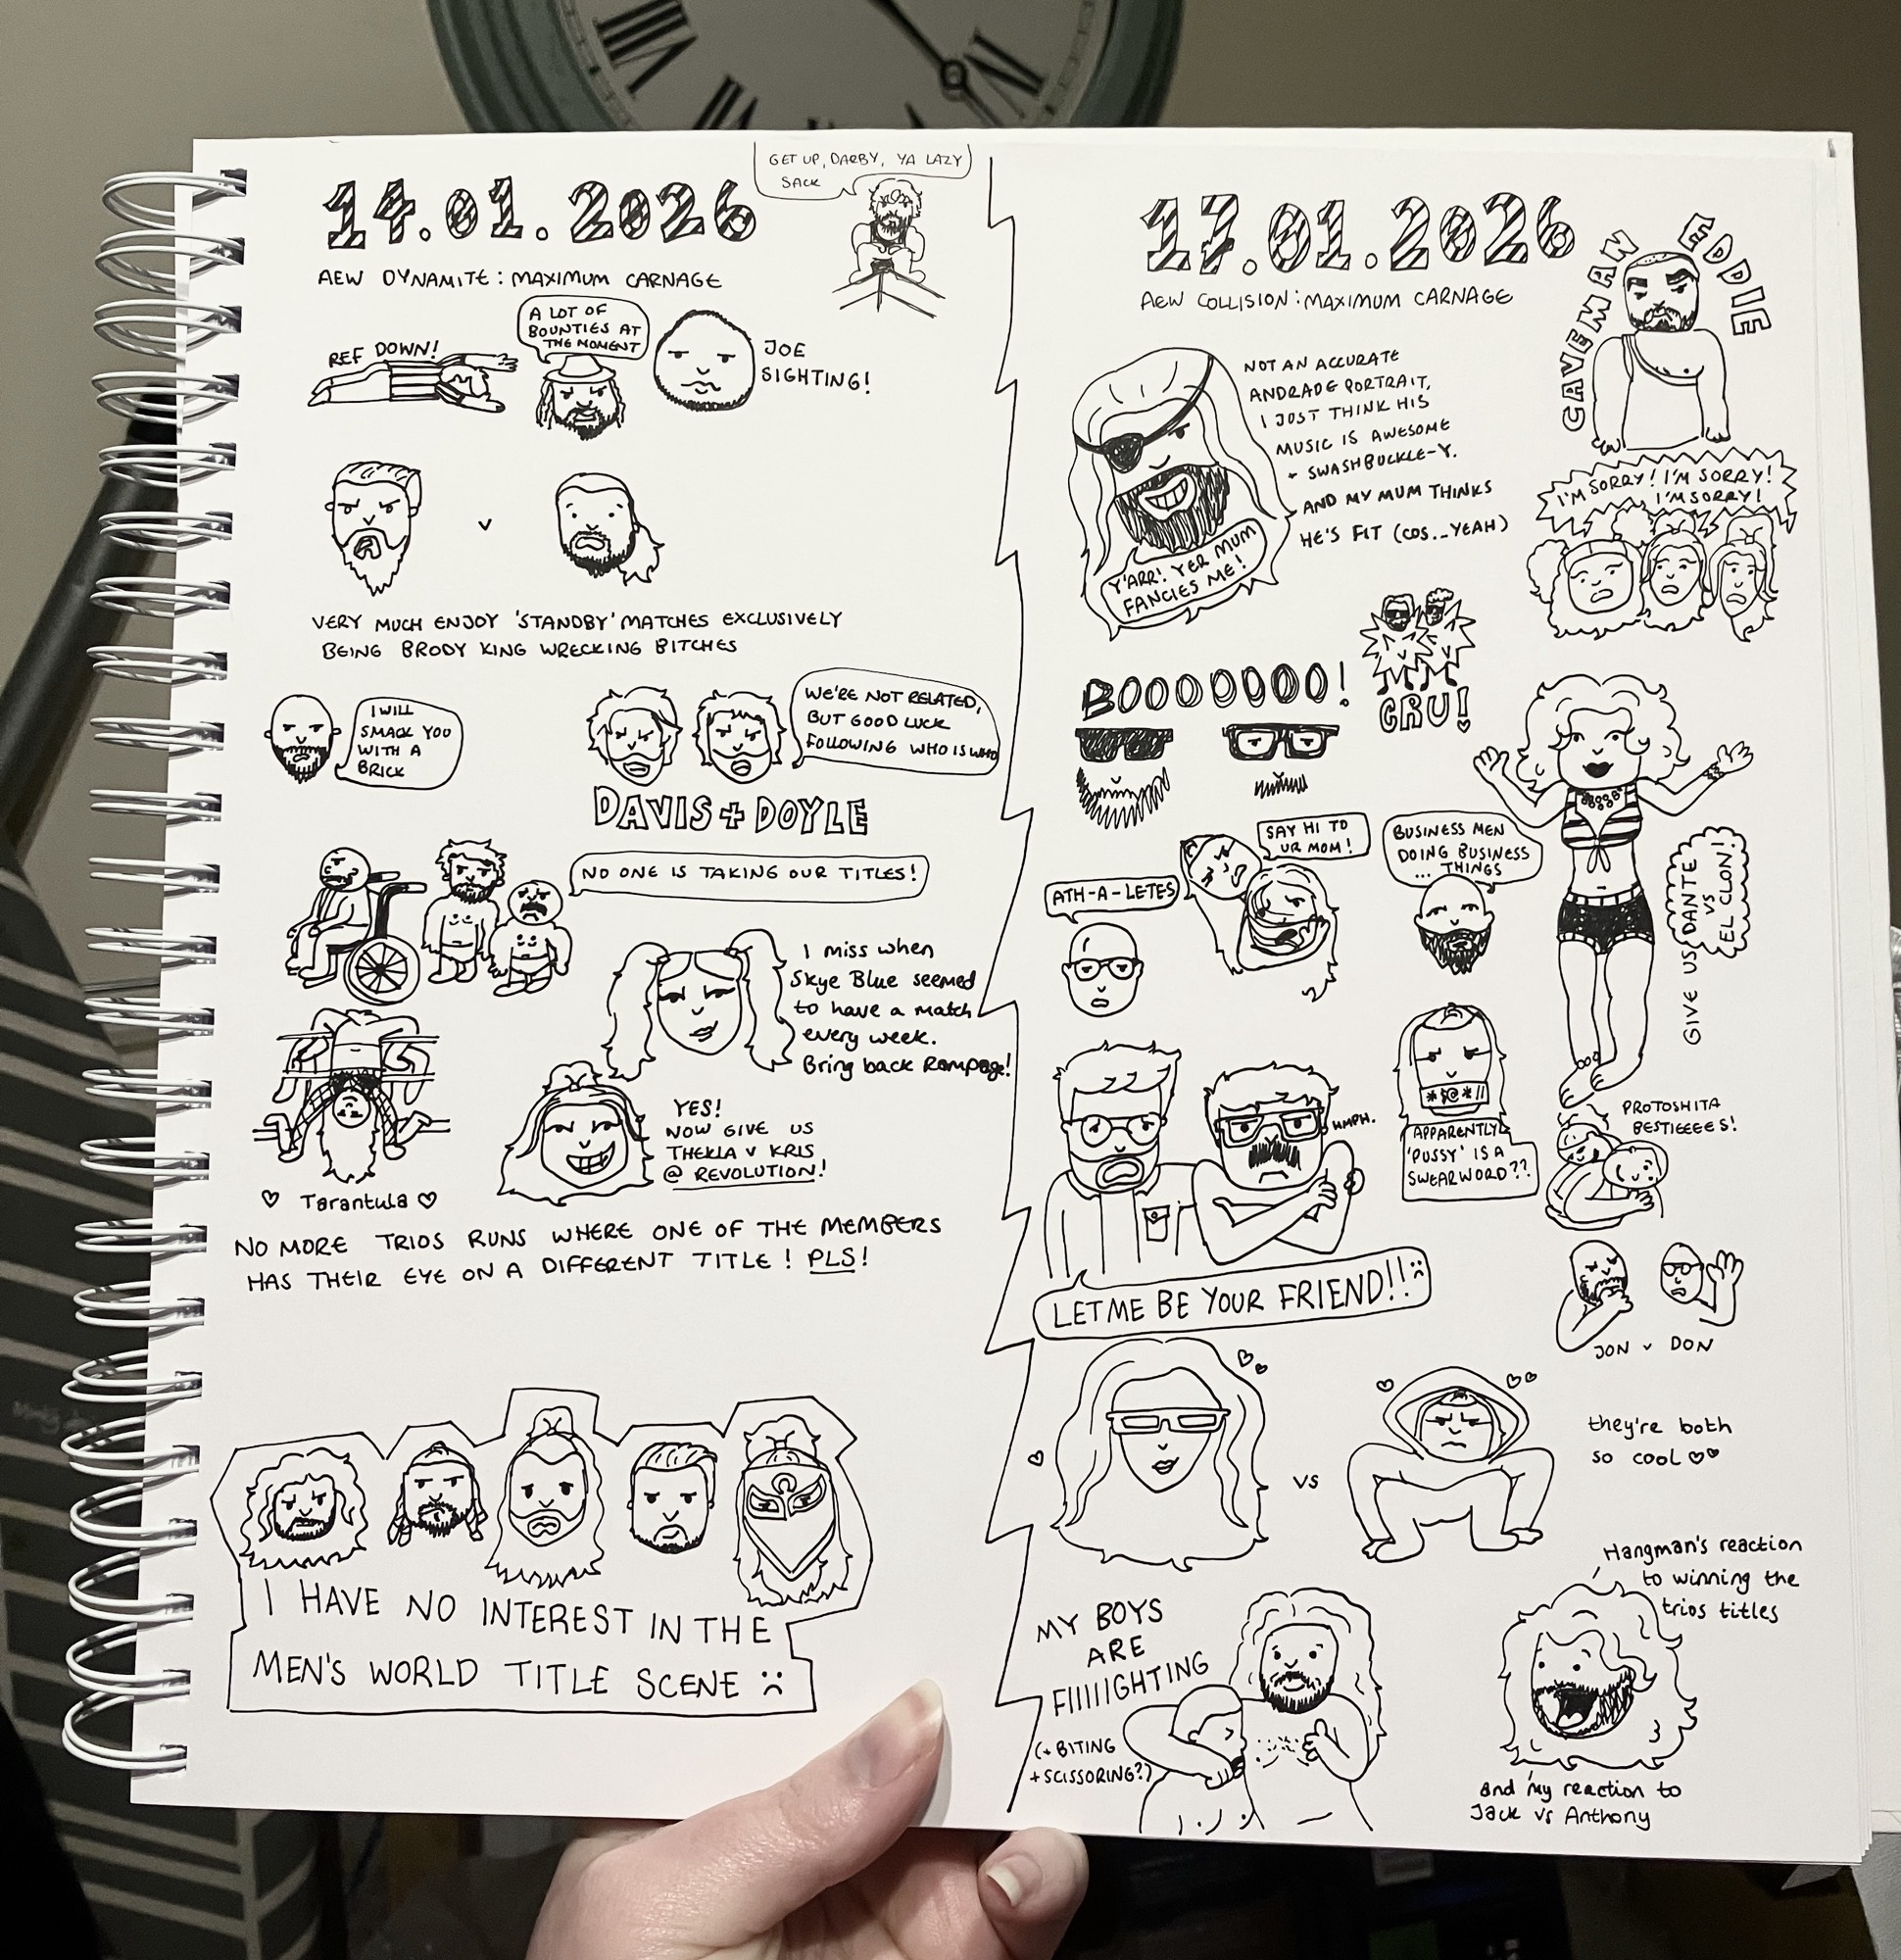 GET UP, DARBY, YA LAZY
SACK
14.01.2026
AEW DYNAMITE: MAXIMUM CARNAGE
REF DOWN!
A LOT OF
BOUNTIES AT
THE MOMENT
JOE
SIGHTING!
v
VERY MUCH ENJOY 'STANDBY' MATCHES EXCLUSIVELY
BEING BRODY KING WRECKING BITCHES
I WILL
SMACK YOU
WITH A
BRICK
WE'RE NOT RELATED,
BUT GOOD LUCK
FOLLOWING WHO IS WHO
DAVIS + DOYLE
NO ONE IS TAKING OUR TITLES!
I miss when
Skye Blue seemed
to have a match
every week.
Bring back Rampage!
♡ Tarantula ♡
YES!
NOW GIVE US
THEKLA V KRIS
@ REVOLUTION!
NO MORE TRIOS RUNS WHERE ONE OF THE MEMBERS
HAS THEIR EYE ON A DIFFERENT TITLE! PLS!
I HAVE NO INTEREST IN THE
MEN'S WORLD TITLE SCENE :(
17.01.2026
AEW COLLISION: MAXIMUM CARNAGE
CAVEMAN EDDIE
NOT AN ACCURATE
ANDRADE PORTRAIT,
I JUST THINK HIS
MUSIC IS AWESOME
+ SWASHBUCKLE-Y.
AND MY MUM THINKS
HE'S FIT (COS... YEAH)
Y'ARR! YER MUM
FANCIES ME!
I'M SORRY! I'M SORRY!
I'M SORRY!
BOOOOOOO!
CRU!
ATH-A-LETES
SAY HI TO
UR MOM!
BUSINESS MEN
DOING BUSINESS
... THINGS
GIVE US DANTE
VS
EL CLON!
HMPH.
LET ME BE YOUR FRIEND!! :(
*$@*!!
APPARENTLY
'PUSSY' IS A
SWEARWORD??
PROTOSHITA
BESTIEEEES!
JON v DON
VS
they're both
so cool ♡♡
MY BOYS
ARE
FIIIIIGHTING
(+ BITING
+ SCISSORING?)
Hangman's reaction
to winning the
trios titles
and my reaction to
Jack vs Anthony